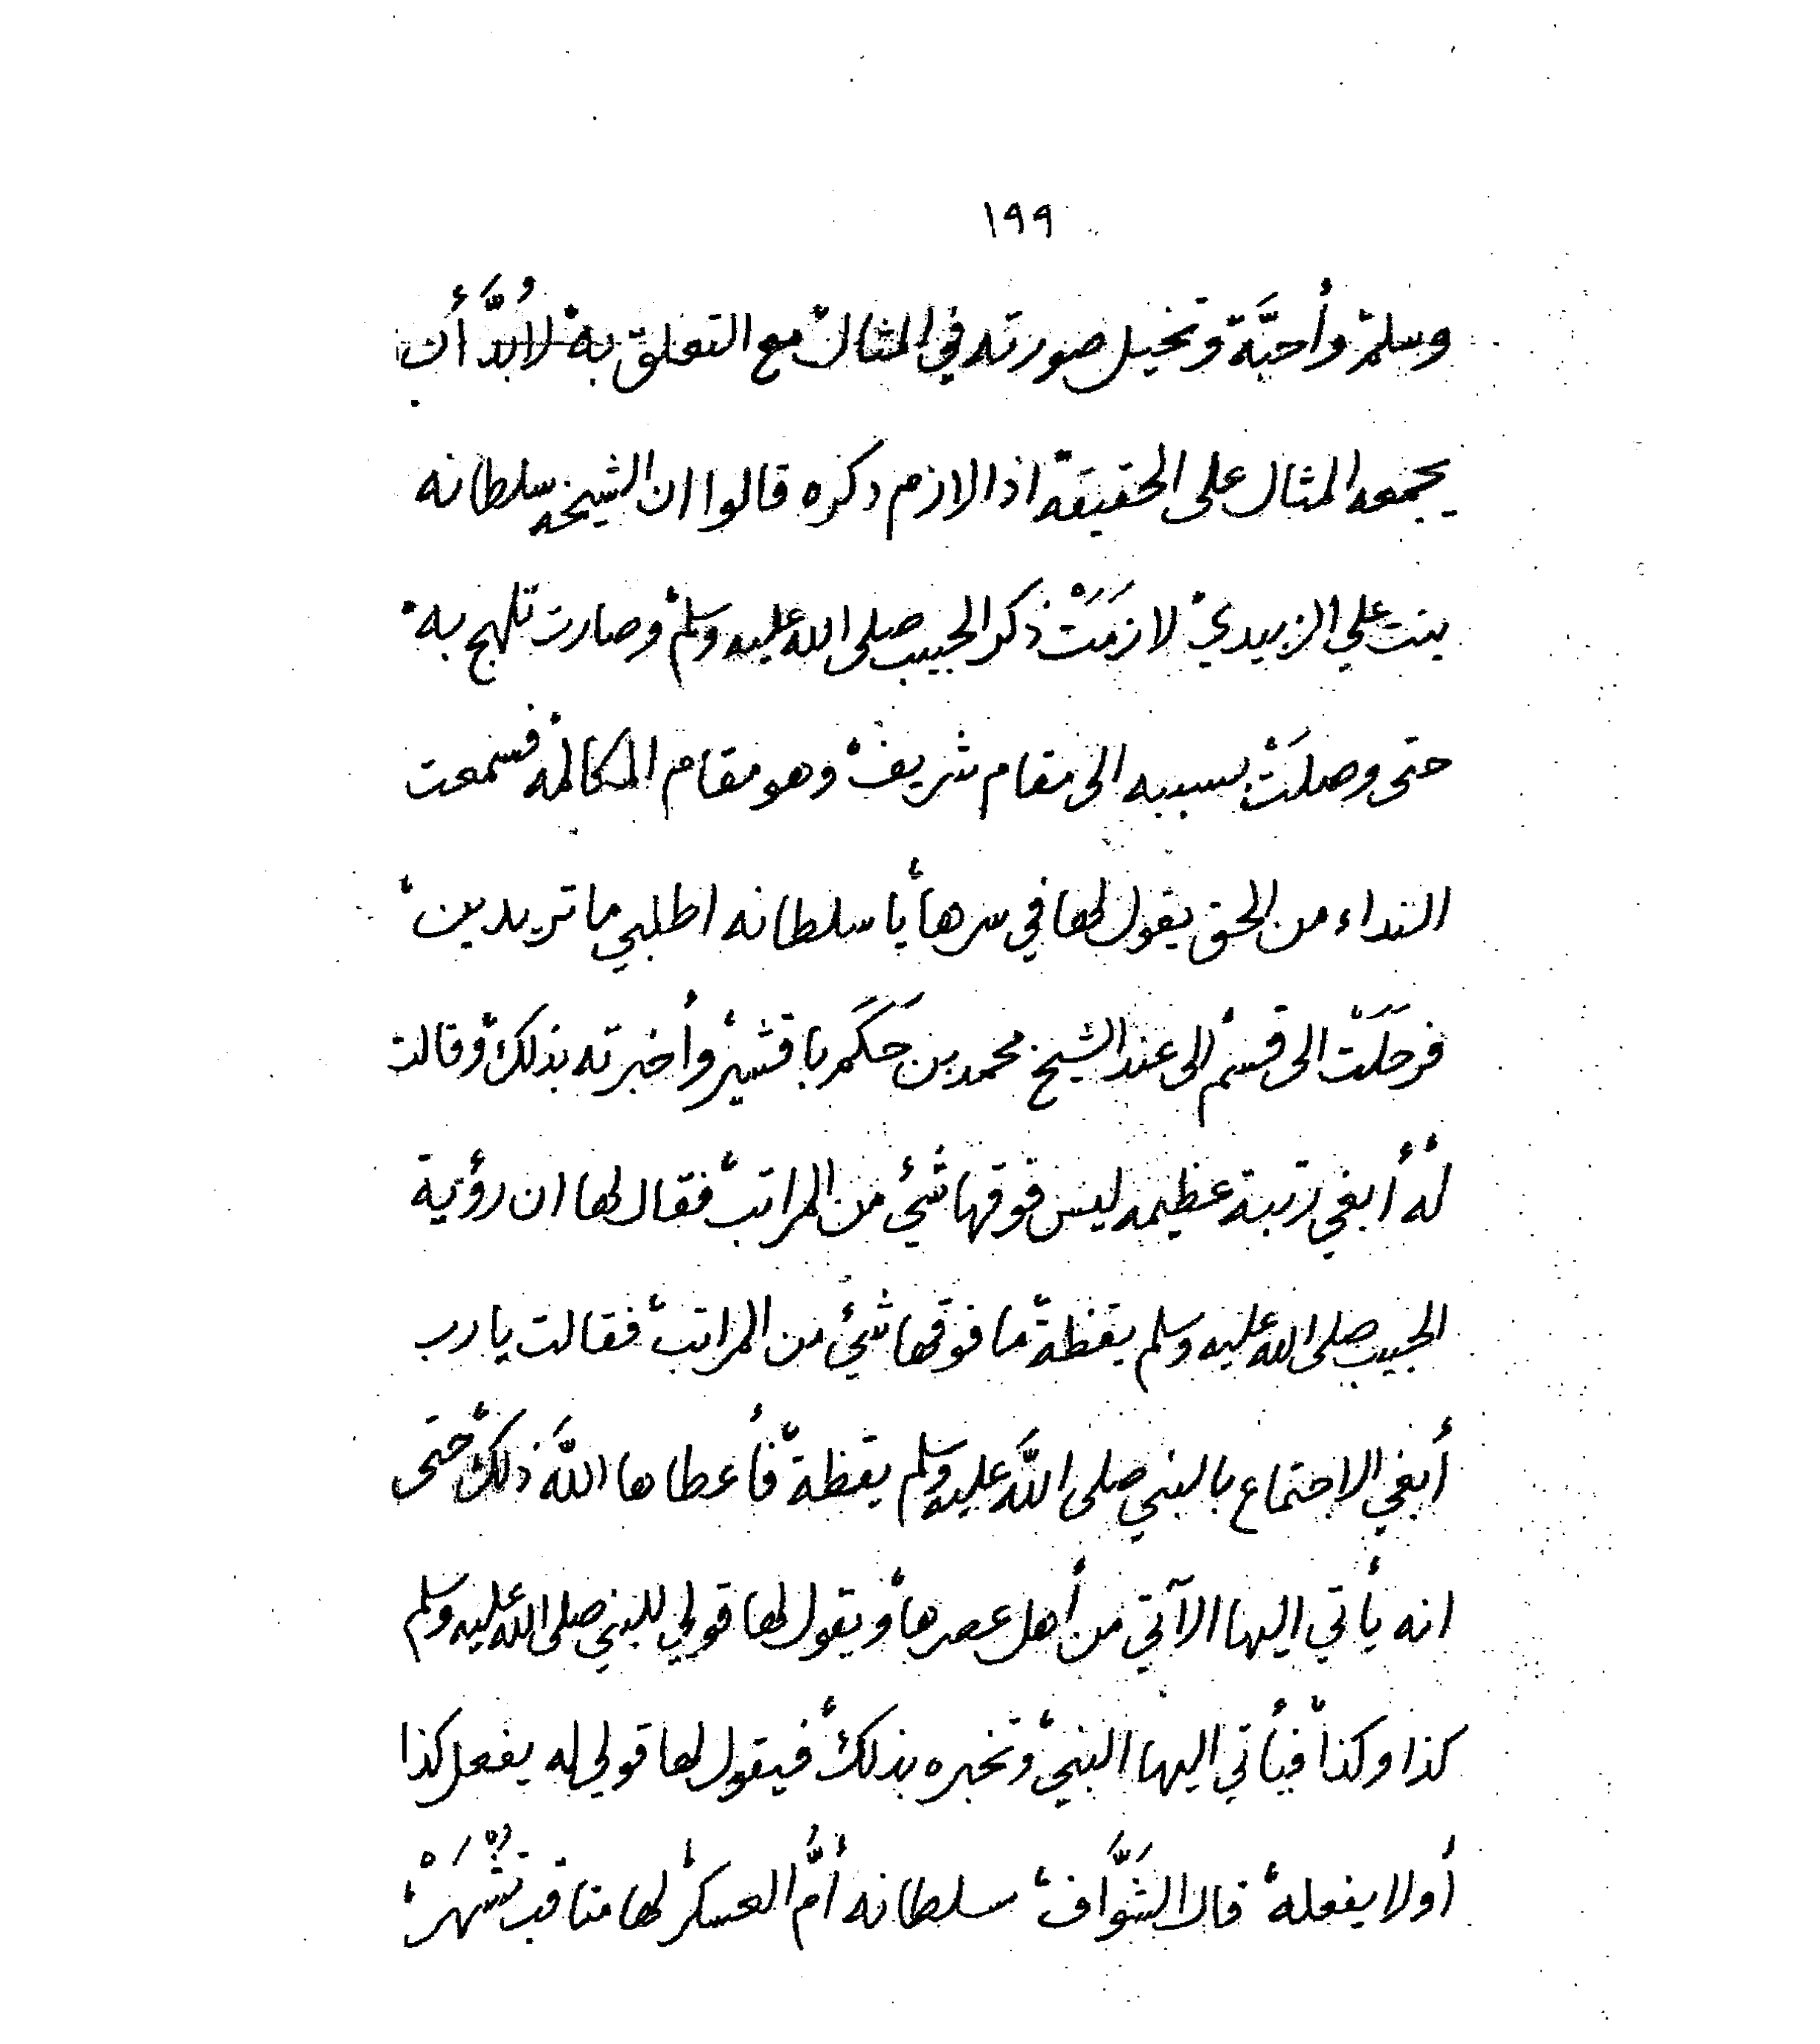 ١٩٩
وسلم، وأحبَّة وتخيل صورته في المثال، مع التعلق به، لابُدَّ أن
يجمعه المثال على الحقيقة، اذا لازم ذكره قالوا ان الشيخه سلطانه
بنت علي الزبيدي، لازمَتْ ذكر الحبيب صلى الله عليه وسلم، وصارت تلهج به،
حتى وصلَتْ بسببه الى مقام شريف، وهو مقام المكالمه، فسمعت
النداء من الحق يقول لها في سرها، يا سلطانه اطلبي ما تريدين،
فرحَلَتْ الى قسم، الى عند الشيخ محمد بن حَكَم باقشير، وأخبرته بذلك، وقالت
له، أبغي رتبة عظيمه ليس فوقها شيء من المراتب، فقال لها ان رؤية
الحبيب صلى الله عليه وسلم يقظة، ما فوقها شيء من المراتب، فقالت يا رب
أبغي الاجتماع بالنبي صلى اللَّه عليه وسلم يقظة، فأعطاها اللَّه ذلك، حتى
انه يأتي اليها الآتي من أهل عصرها، ويقول لها قولي للنبي صلى الله عليه وسلم
كذا وكذا، فيأتي اليها النبي، وتخبره بذلك، فيقول لها قولي له يفعل كذا
أولا يفعله، قال الشَّوَّاف، سلطانه أمَّ العسكر، لها مناقب تُشْهَرْ،